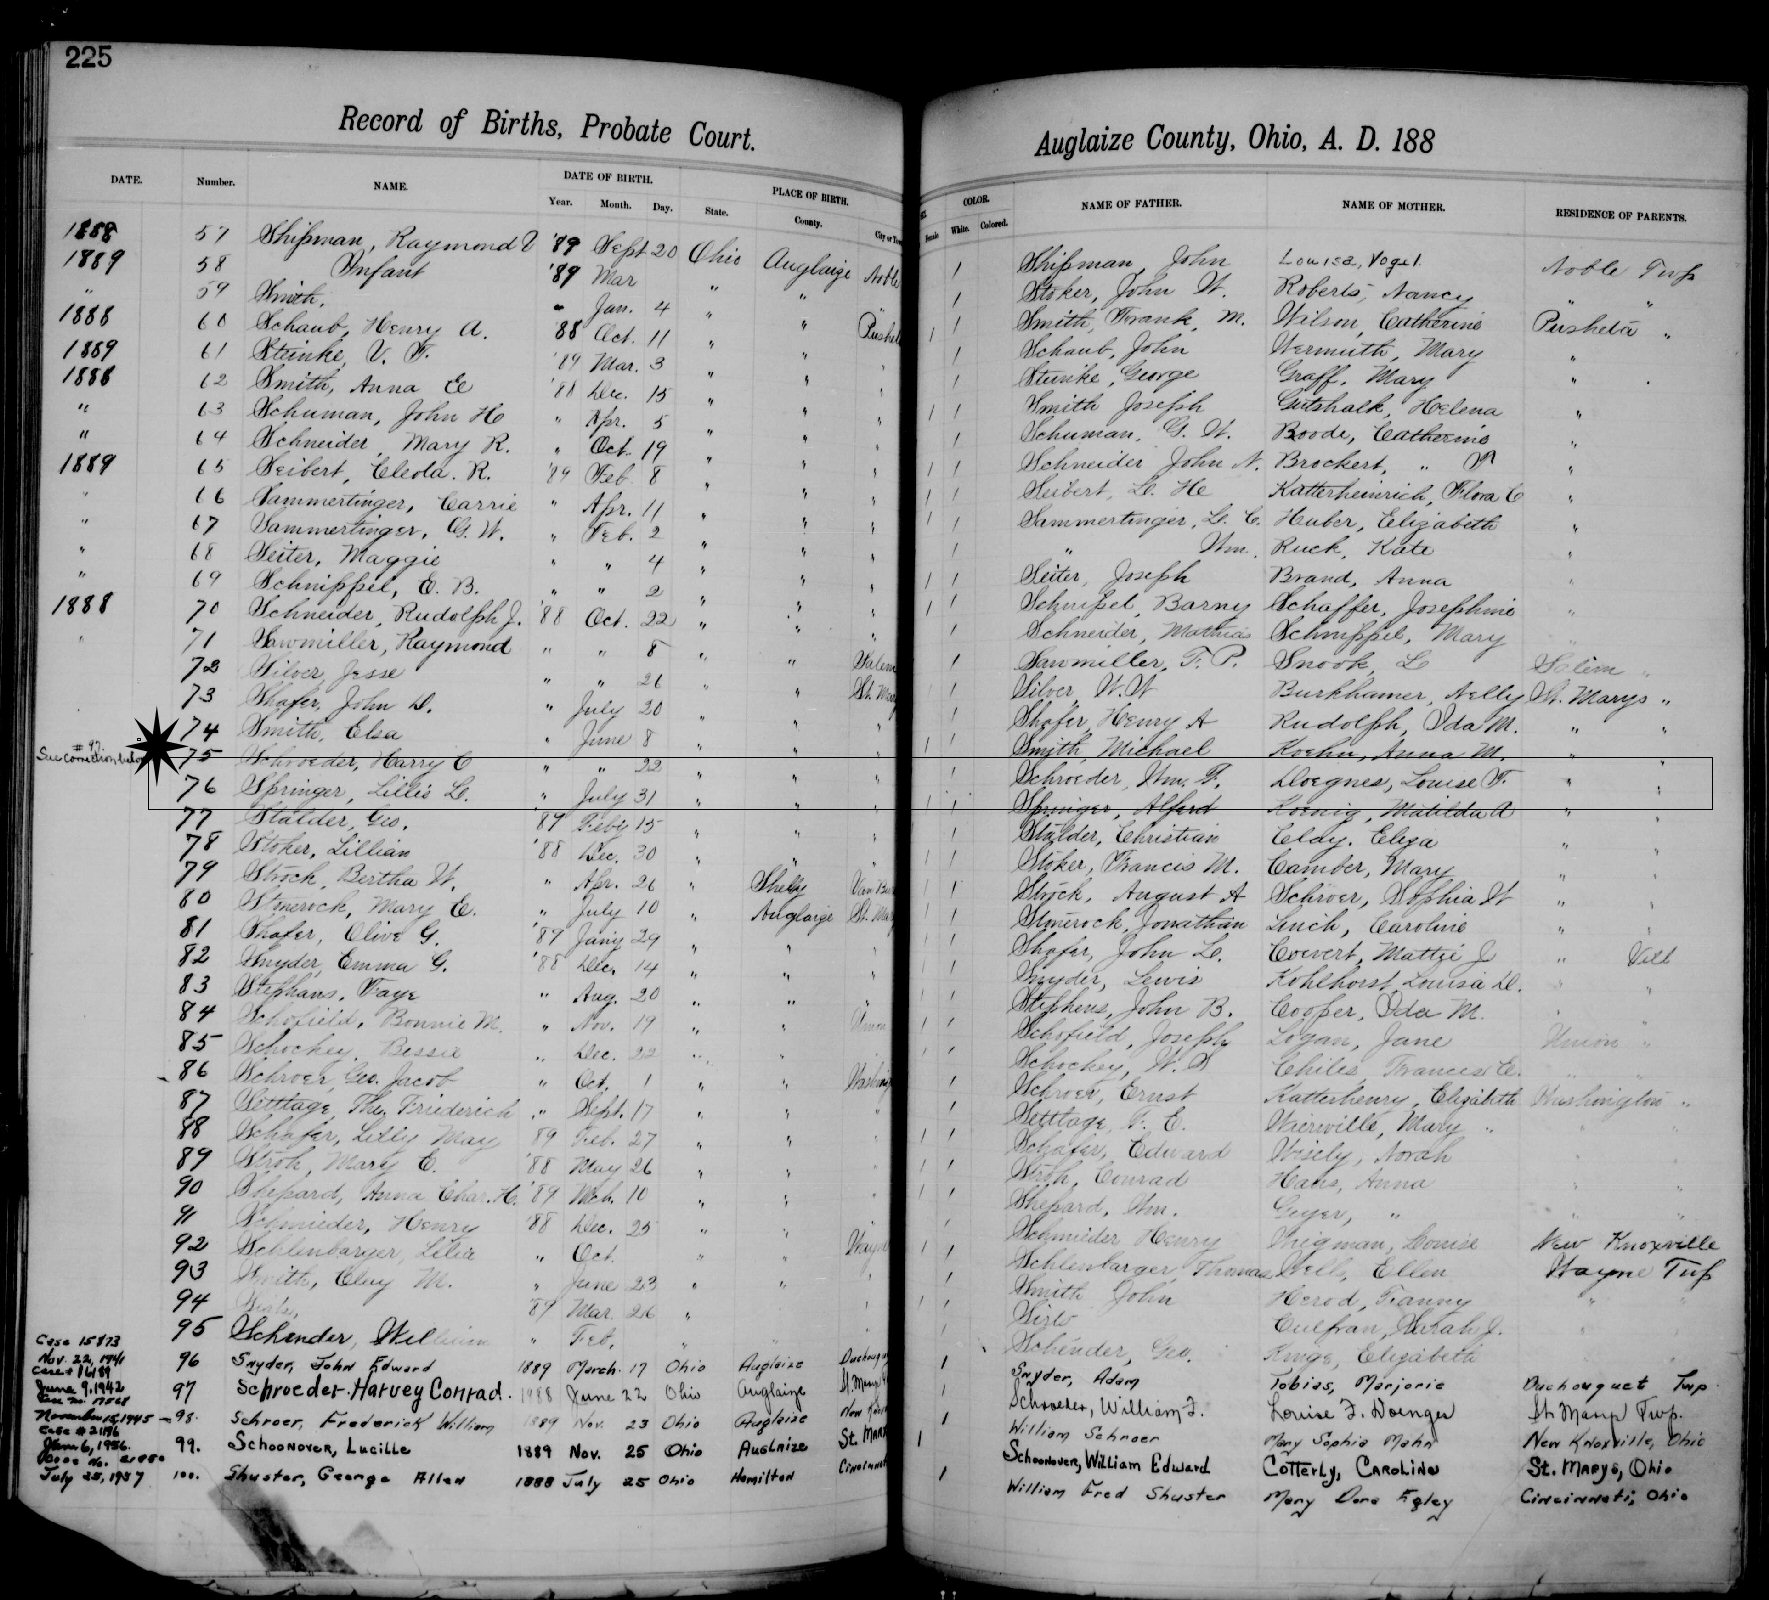 225
Record of Births, Probate Court.
Auglaize County, Ohio, A. D. 188
DATE. Number. NAME. DATE OF BIRTH. PLACE OF BIRTH. COLOR. NAME OF FATHER. NAME OF MOTHER. RESIDENCE OF PARENTS.
Year. Month. Day. State. County. City or Tow Female White. Colored.
1888 57 Shipman, Raymond V '89 Sept 20 Ohio Auglaize Noble / Shipman John Louisa, Vogel Noble Twp
1889 58 Infant '89 Mar " " " / Stoker, John W. Roberts, Nancy " "
" 59 Smith, Jan. 4 " " Pushet / / Smith, Frank M. Wilson, Catherine Pusheta "
1888 60 Schaub, Henry A. '88 Oct. 11 " " " / Schaub, John Wermuth, Mary "
1889 61 Steinke, V. F. '89 Mar. 3 " " " / Steinke, George Graff, Mary "
1888 62 Smith, Anna E '88 Dec. 15 " " " / / Smith Joseph Gutshalk, Helena "
" 63 Schuman, John H " Apr. 5 " " " / Schuman, G. W. Boode, Catherine "
" 64 Schneider Mary R. " Oct. 19 " " " / / Schneider John N. Brockert, " "
1889 65 Seibert, Cleola. R. '89 Feb 8 " " " / / Seibert, L. H Katterheinrich, Flora C "
" 66 Sammertinger, Carrie " Apr. 11 " " " / / Sammertinger, L. C. Huber, Elizabeth "
" 67 Sammertinger, G. W. " Feb. 2 " " " / " Wm. Ruck, Kate "
" 68 Seiter, Maggie " " 4 " " " / / Seiter, Joseph Brand, Anna "
" 69 Schnippel, E. B. " " 2 " " " / / Schnipel, Barny Schaffer, Josephine "
1888 70 Schneider, Rudolph J. '88 Oct. 22 " " " Schneider, Mathias Schnippel, Mary
" 71 Sawmiller, Raymond " " 8 " " Salem / Sawmiller, T. P. Snook, L Salem "
72 Silver, Jesse " " 26 " " St. Mary / Silver, W. W Burkhamer, Nelly St. Marys "
73 Shafer, John D. " July 20 " " " / Shafer, Henry A Rudolph, Ida M. " "
74 Smith, Elsa " June 8 " " " / / Smith, Michael Koehn, Anna M. " "
# 97.
See correction below 75 Schroeder, Harry C " " 22 " " " / Schroeder, Wm. F. Doegnes, Louise F. " "
76 Springer, Lillis L. " July 31 " " " / / Springer, Alferd Koenig, Matilda A " "
77 Stalder, Geo. '89 Feby 15 " " " / Stalder, Christian Elay, Eliza " "
78 Stoker, Lillian '88 Dec. 30 " " " / / Stoker, Francis M. Camber, Mary " "
79 Strock, Bertha W. " Apr. 26 " Shelby Van Bur / / Strock, August A Schroer, Sophia W " "
80 Stonerock, Mary E. " July 10 " Auglaize St. Mar / / Stonerock, Jonathan Linch, Caroline " "
81 Shafer, Olive G. '89 Jany 29 " " " / / Shafer, John L. Covert, Mattie J " Vill
82 Snyder, Emma G. '88 Dec. 14 " " " / / Snyder, Lewis Kohlhorst, Louisa D. " "
83 Stephans, Faye " Aug. 20 " " " / / Stephens, John B. Cooper, Ida M. "
84 Schofield, Bonnie M. " Nov. 19 " " Union / / Schofield, Joseph Logan, Jane Union "
85 Schockey, Bessie " Dec. 22 " " / / Schockey, W. S Chiles, Frances E.
86 Schroer, Geo. Jacob " Oct. 1 " " Washing / Schroer, Ernst Katterhenry, Elizabeth Washington "
87 Settlage, Theo, Friederich " Sept. 17 " " " / Settlage, F. E. Wierville, Mary "
88 Schafer, Lilly May '89 Feb. 27 " " / / Schafer, Edward Wisely, Norah
89 Stroh, Mary E. '88 May 26 " " " / / Stroh, Conrad Haas, Anna
90 Shepard, Anna Char. H. '89 Mch. 10 " " " / / Shepard, Wm. Geyer, " " "
91 Schmieder, Henry '88 Dec. 25 " " " / Schmieder Henry Louise New Knoxville
92 Schlenbarger, Lilie " Oct. " " Wayne / / Schlenbarger Thomas Wells, Ellen Wayne Twp
93 Smith, Clay M. " June 23 " " " / Smith John Herod, Fanny
94 '89 Mar. 26 " / / Culfran, Sarah J.
95 Schender, William " Feb. Schender, Geo. Kinge, Elizabeth
Case 15873
Nov. 22, 1941 96 Snyder, John Edward 1889 March 17 Ohio Auglaize Duchouqu / Snyder, Adam Tobias, Marjorie Duchouquet Twp.
June 9, 1942 97 Schroeder Harvey Conrad. 1988 June 22 Ohio Auglaize St. Marys / Schroeder, William F. Louise F. Doenges St. Marys Twp.
November 15, 1945 98. Schroer, Frederick William 1889 Nov. 23 Ohio Auglaize New Knox / William Schroer Mary Sophia Mahn New Knoxville, Ohio
Case # 21196
June 6, 1956. 99. Schoonover, Lucille 1889 Nov. 25 Ohio Auglaize St. Mary / Schoonover, William Edward Cotterly, Caroline St. Marys, Ohio
July 25, 1957 100. Shuster, George Allen 1888 July 25 Ohio Hamilton Cincinnat / William Fred Shuster Mary Dora Egley Cincinnati, Ohio